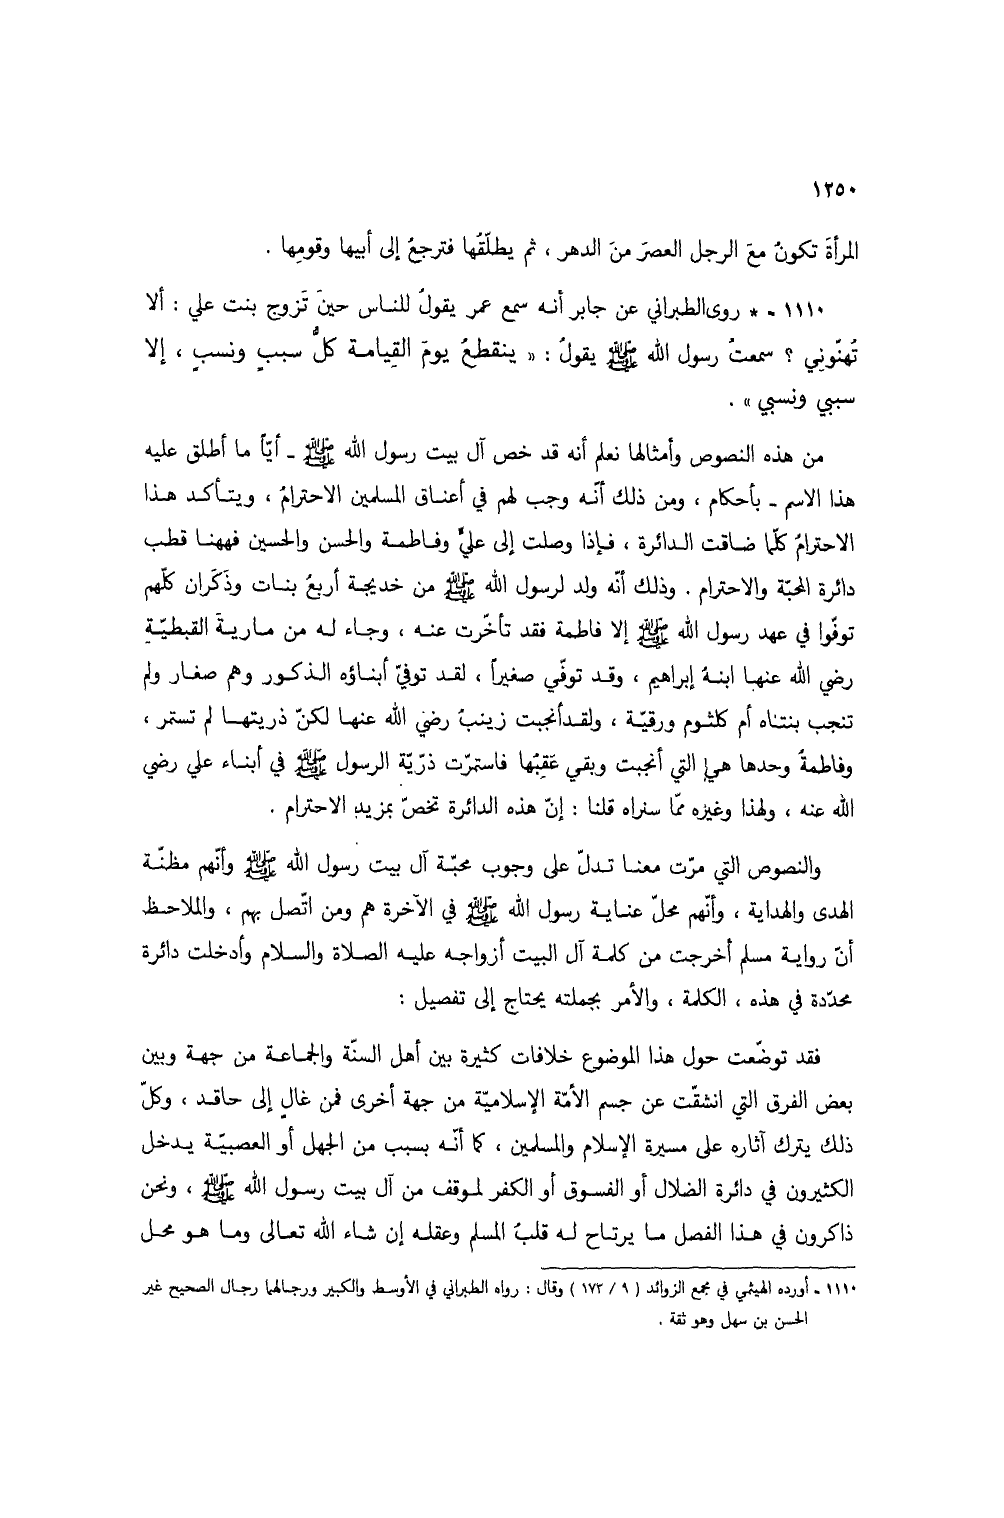 ١٢٥٠
المرأةَ تكونُ معَ الرجل العصرَ منَ الدهر ، ثم يطلّقُها فترجعُ إلى أبيها وقومِها .
١١١٠ - * روى الطبراني عن جابر أنه سمع عمر يقولُ للناس حينَ تَزوج بنت علي : ألا
تُهنّوني ؟ سمعتُ رسول الله ﷺ يقولُ : « ينقطعُ يومَ القِيامة كلُّ سببٍ ونسبٍ ، إلا
سببي ونسبي » .
من هذه النصوص وأمثالها نعلم أنه قد خص آل بيت رسول الله ﷺ - أيّاً ما أطلق عليه
هذا الاسم - بأحكام ، ومن ذلك أنّه وجب لهم في أعناق المسلمين الاحترامُ ، ويتأكد هذا
الاحترامُ كلّما ضاقت الدائرة ، فإذا وصلت إلى عليٍّ وفاطمة والحسن والحسين فههنا قطب
دائرة المحبّة والاحترام . وذلك أنّه ولد لرسول الله ﷺ من خديجة أربعُ بنات وذَكَران كلّهم
توفّوا في عهد رسول الله ﷺ إلا فاطمة فقد تأخّرت عنه ، وجاء له من ماريةَ القبطيّةِ
رضي الله عنها ابنهُ إبراهيم ، وقد توفّي صغيراً ، لقد توفيّ أبناؤه الذكور وهم صغار ولم
تنجب بنتاه أم كلثوم ورقيّة ، ولقدأنجبت زينبُ رضي الله عنها لكنّ ذريتها لم تستمر ،
وفاطمةُ وحدها هي التي أنجبت وبقي عَقِبُها فاستمرّت ذرّيّة الرسول ﷺ في أبناء علي رضي
الله عنه ، ولهذا وغيره ممّا سنراه قلنا : إنّ هذه الدائرة تخصّ بمزيدِ الاحترام .
والنصوص التي مرّت معنا تدلّ على وجوب محبّة آل بيت رسول الله ﷺ وأنّهم مظنّة
الهدى والهداية ، وأنّهم محلّ عناية رسول الله ﷺ في الآخرة هم ومن اتّصل بهم ، والملاحظ
أنّ رواية مسلم أخرجت من كلمة آل البيت أزواجه عليه الصلاة والسلام وأدخلت دائرة
محدّدة في هذه ، الكلمة ، والأمر بجملته يحتاج إلى تفصيل :
فقد توضّعت حول هذا الموضوع خلافات كثيرة بين أهل السنّة والجماعة من جهة وبين
بعض الفرق التي انشقّت عن جسم الأمّة الإسلاميّة من جهة أخرى فمن غالٍ إلى حاقد ، وكلّ
ذلك يترك آثاره على مسيرة الإسلام والمسلمين ، كما أنّه بسبب من الجهل أو العصبيّة يدخل
الكثيرون في دائرة الضلال أو الفسوق أو الكفر لموقف من آل بيت رسول الله ﷺ ، ونحن
ذاكرون في هذا الفصل ما يرتاح له قلبُ المسلم وعقله إن شاء الله تعالى وما هو محل
١١١٠ - أورده الهيثمي في مجمع الزوائد ( ٩ / ١٧٣ ) وقال : رواه الطبراني في الأوسط والكبير ورجالهما رجال الصحيح غير
الحسن بن سهل وهو ثقة .